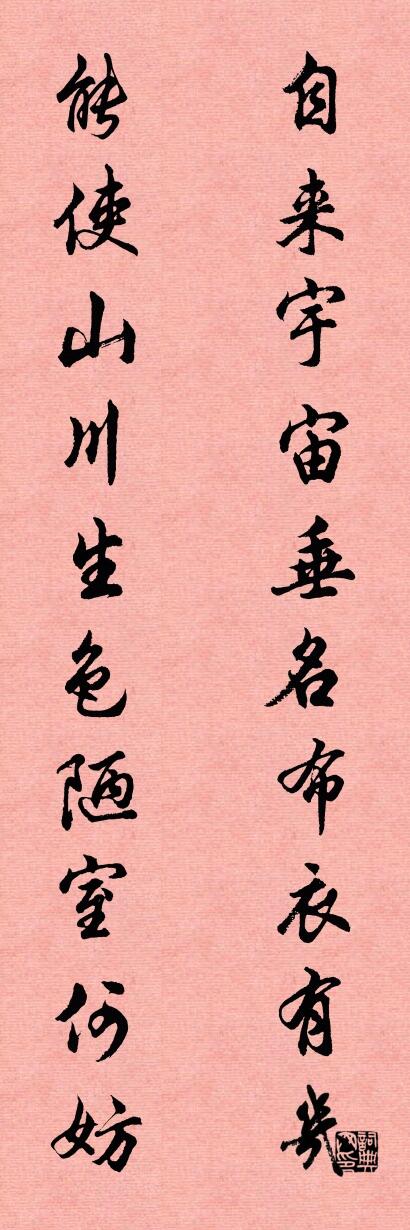 自来宇宙垂名布衣有几
能使山川生色陋室何妨